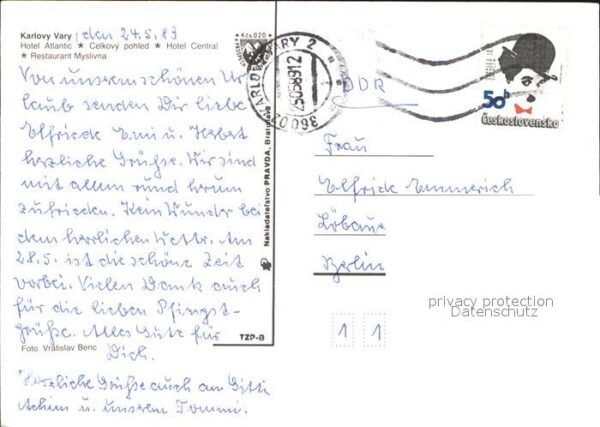 Karlovy Vary, den 24.5.89
Hotel Atlantic ★ Celkový pohled ★ Hotel Central
★ Restaurant Myslivna
Kčs 0,20
Von unserem schönen Ur
laub senden Dir liebe
Elfriede Emi u. Herbert
herzliche Grüße. Wir sind
mit allem rund herum
zufrieden. Kein Wunder bei
dem herrlichen Wettr. Am
28.5. ist die schöne Zeit
vorbei. Vielen Dank auch
für die lieben Pfingst-
grüße. Alles Gute für
Dich.
Foto Vratislav Benc
Herzliche Grüße auch an Gitti
Achim u. unserem Tommi.
Nakladatelstvo PRAVDA, Bratislava
TZP-B
KARLOVY VARY 2
25058912
36007
50h
Československo
DDR
Frau
Elfriede Emmerich
Berlin
1 1
privacy protection
Datenschutz